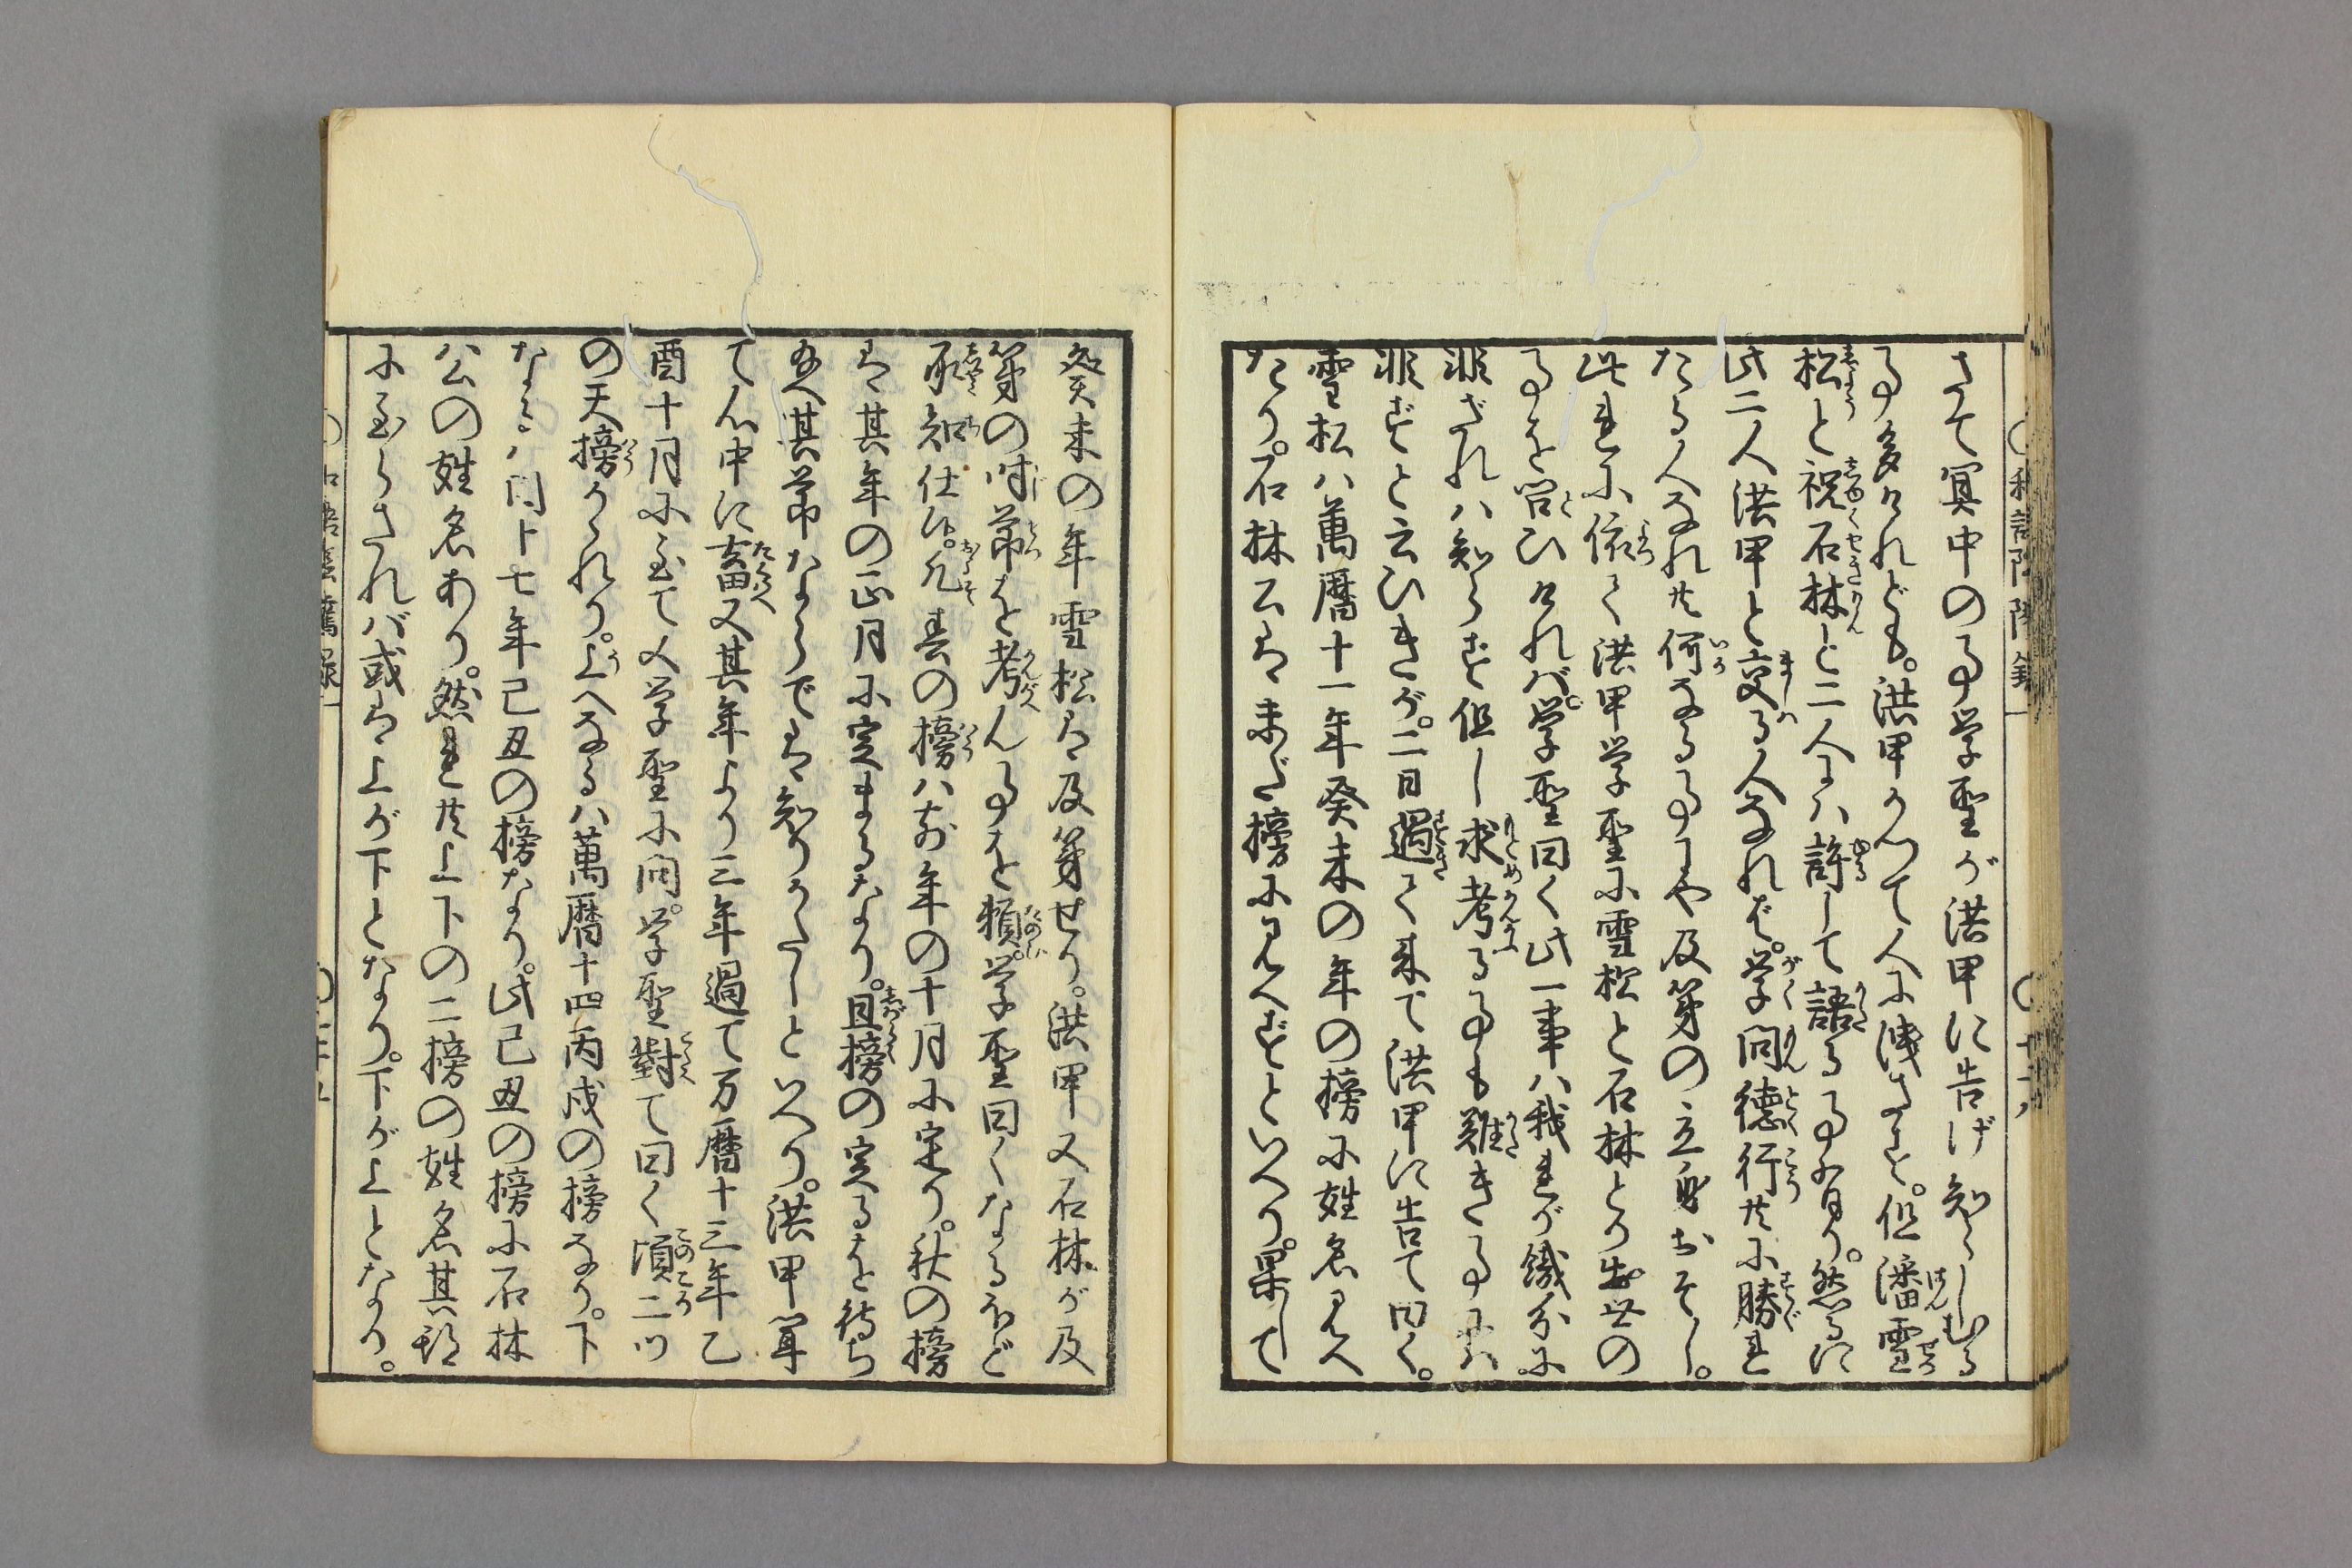 さて冥中の事学聖が洪甲に告げ知らしむる
事多けれども。洪甲かつて人に洩さず。但潘雪
松と祝石林と二人には許して語る事有り。然るに
此二人洪甲と交る人なれば。学問徳行共に勝れ
たる人なれ共何なる事にや及第の立身おそし。
此れに依て洪甲学聖に雪松と石林とが出世の
事を問ひければ。学聖曰く此一事ハ我れが職分に
非ざれハ知らず但し求考る事も難き事にハ
非ずと云ひきが。二日過て来て洪甲に告て曰く。
雪松ハ萬暦十一年癸未の年の榜に姓名見へ
たり。石林公は未だ榜に見へずといへり。果して
癸未の年雪松は及第せり。洪甲又石林が及
第の時節を考んる事を頼。学聖曰くなるほど
承知仕り。凡春の榜ハ前年の十月に定り。秋の榜
は其年の正月に定まるなり。且榜の定るを待ち
玉へ其節ならでは知りがたしといへり。洪甲聞
て心中に畜又其年より三年過て万暦十三年乙
酉十月に至て又学聖に問。学聖對て曰く頃二ツ
の天榜かゝれり。上へなるハ萬暦十四丙戌の榜なり。下
なるハ同十七年己丑の榜なり。此己丑の榜に石林
公の姓名あり。然れ共上下の二榜の姓名其期
に至らざれバ或は上が下となり。下が上となり。